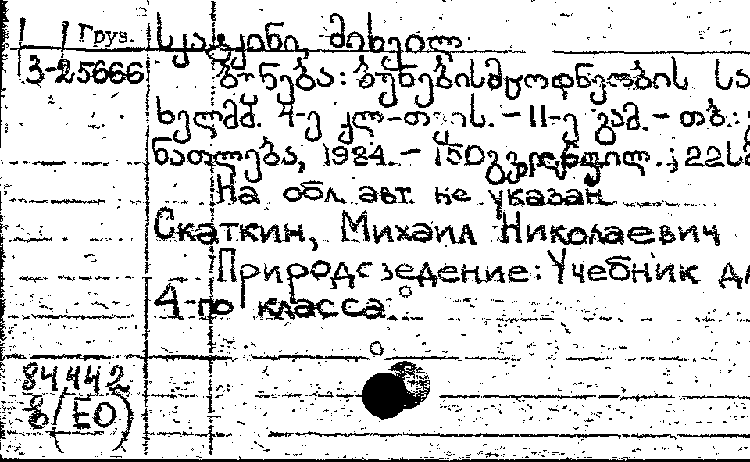 Груз.
სკატკინი, მიხეილ
3-25666
ბუნება: ბუნებისმცოდნეობის სა
ხელმძ. 4-ე კლ-თვის. - II-ე გამ. - თბ.:
ნათლება, 1984. - 150გვ. ; 22სმ
На обл. авт. не указан
Скаткин, Михаил Николаевич
Природоведение: Учебник дл
4-го класса.
84.442
(ЕО)